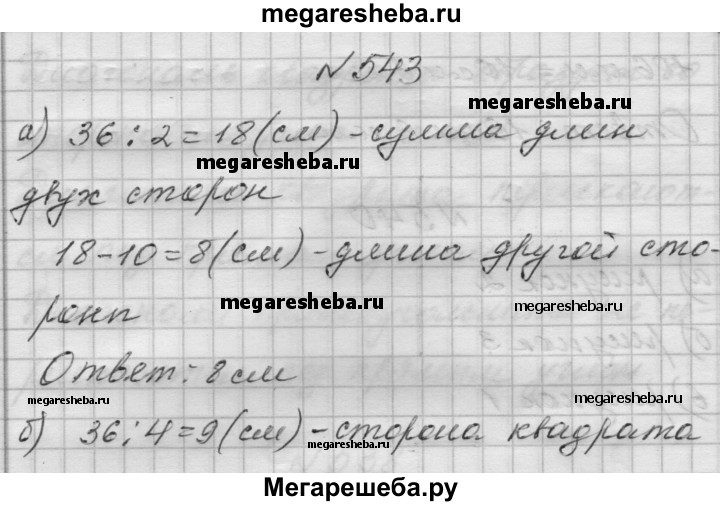 megaresheba.ru
№543
megaresheba.ru
а) 36:2=18(см)-сумма длин
megaresheba.ru
двух сторон
18-10=8(см)-длина другой сто-
megaresheba.ru
megaresheba.ru
роны
Ответ: 8 см
megaresheba.ru
megaresheba.ru
б) 36:4=9(см)-сторона квадрата
megaresheba.ru
Мегарешеба.ру